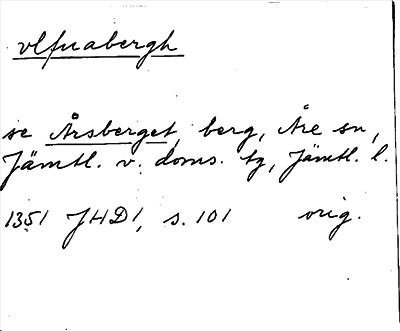 vlfuabergh
se Årsberget, berg, Åre sn,
Jämtl. v. doms. tg, Jämtl. l.
1351 JHD1, s. 101 orig.